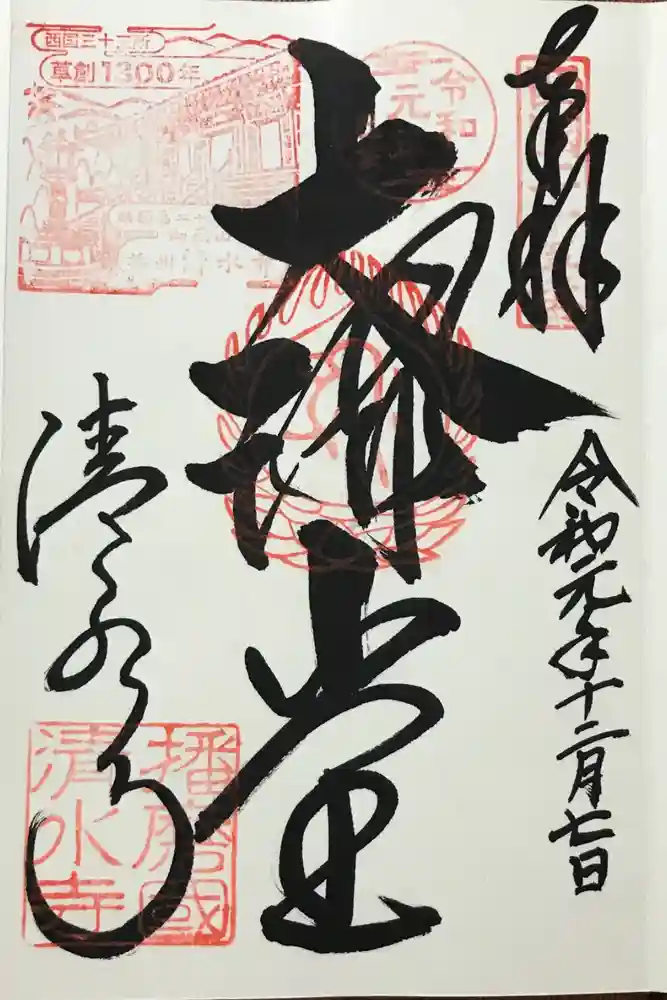 奉拝
令和元年十二月七日
大講堂
清水寺
西国三十三所
草創1300年
令和
元
播磨國
清水寺